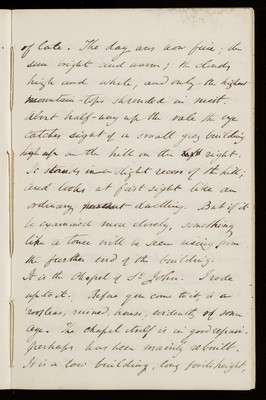 of late. The day was now fine; the
sun bright and warm; the clouds
high and white, and only the highest
mountain-tops shrouded in mist.
About half-way up the vale the eye
catches sight of a small grey building
high up on the hill on the right.
It stands in a slight recess of the hill;
and looks at first sight like an
ordinary dwelling. But if it
be examined more closely, something
like a tower will be seen rising from
the further end of the building.
It is the Chapel of St. John. I rode
up to it. Before you come to it is a
roofless, ruined, house, evidently of some
age. The chapel itself is in good repair.
perhaps has been mainly rebuilt.
It is a low building, long for its height,